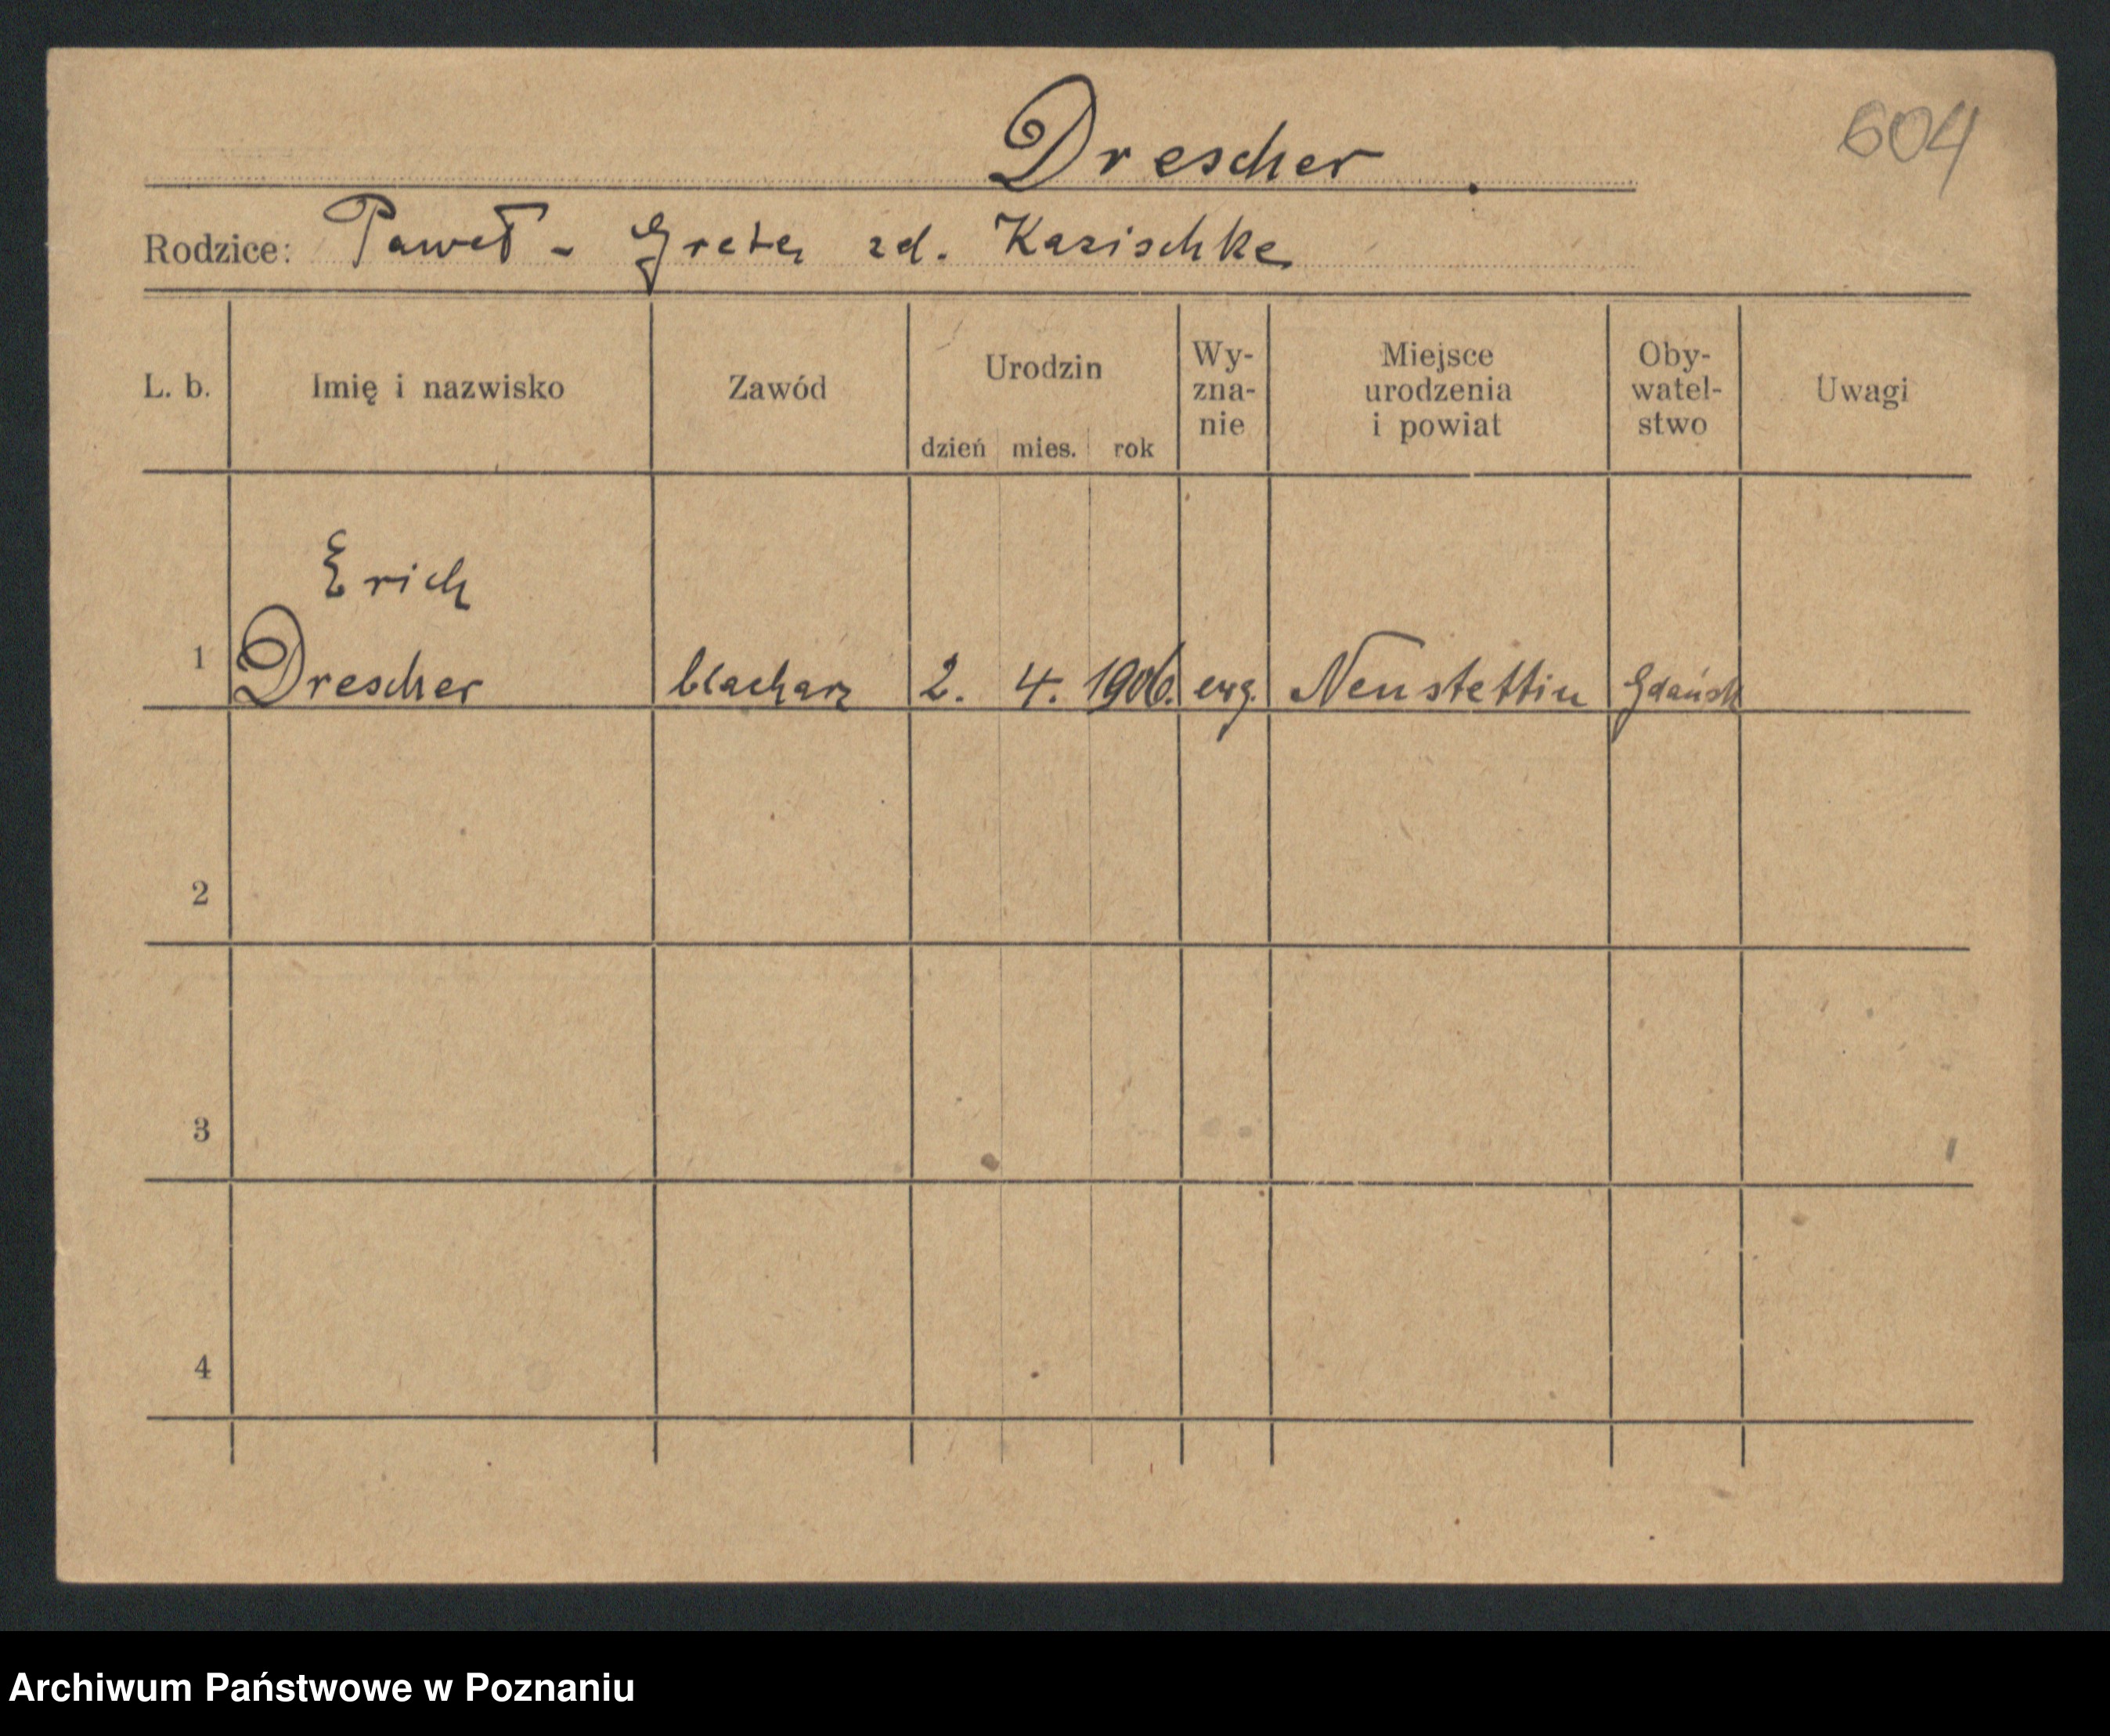 Drescher
604
Rodzice: Paweł - Greta zd. Kazischke
L. b. Imię i nazwisko Zawód Urodzin dzień mies. rok Wy-zna-nie Miejsce urodzenia i powiat Oby-watel-stwo Uwagi
Erich
1 Drescher blacharz 2. 4. 1906. ewg. Neustettin Gdańsk
2
3
4
Archiwum Państwowe w Poznaniu